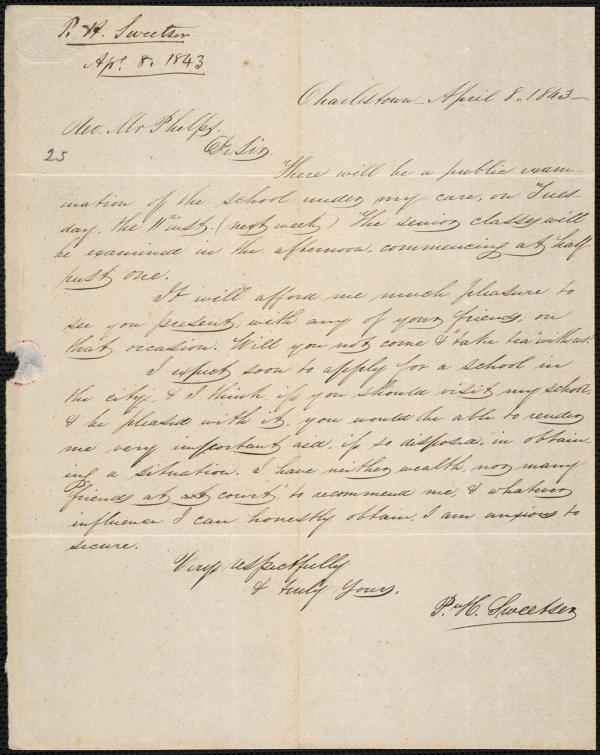 P. H. Sweetser
Apl. 8. 1843
Charlestown April 8. 1843
Rev. Mr Phelps.
25
Dr Sir,
There will be a public exam-
ination of the school under my care, on Tues
day, the 11th inst. (next week) The senior classes will
be examined in the afternoon, commencing at half
past one.
It will afford me much pleasure to
see you present, with any of your friends, on
that occasion. Will you not come & "take tea" with us?
I expect soon to apply for a school in
the city, & I think, if you should visit my school,
& be pleased with it, you would be able to render
me very important aid, if so disposed, in obtain
ing a situation. I have neither wealth, nor many
"friends at court" to recommend me, & whatever
influence I can honestly obtain, I am anxious to
secure.
Very respectfully
& truly Yours.
P. H. Sweetser